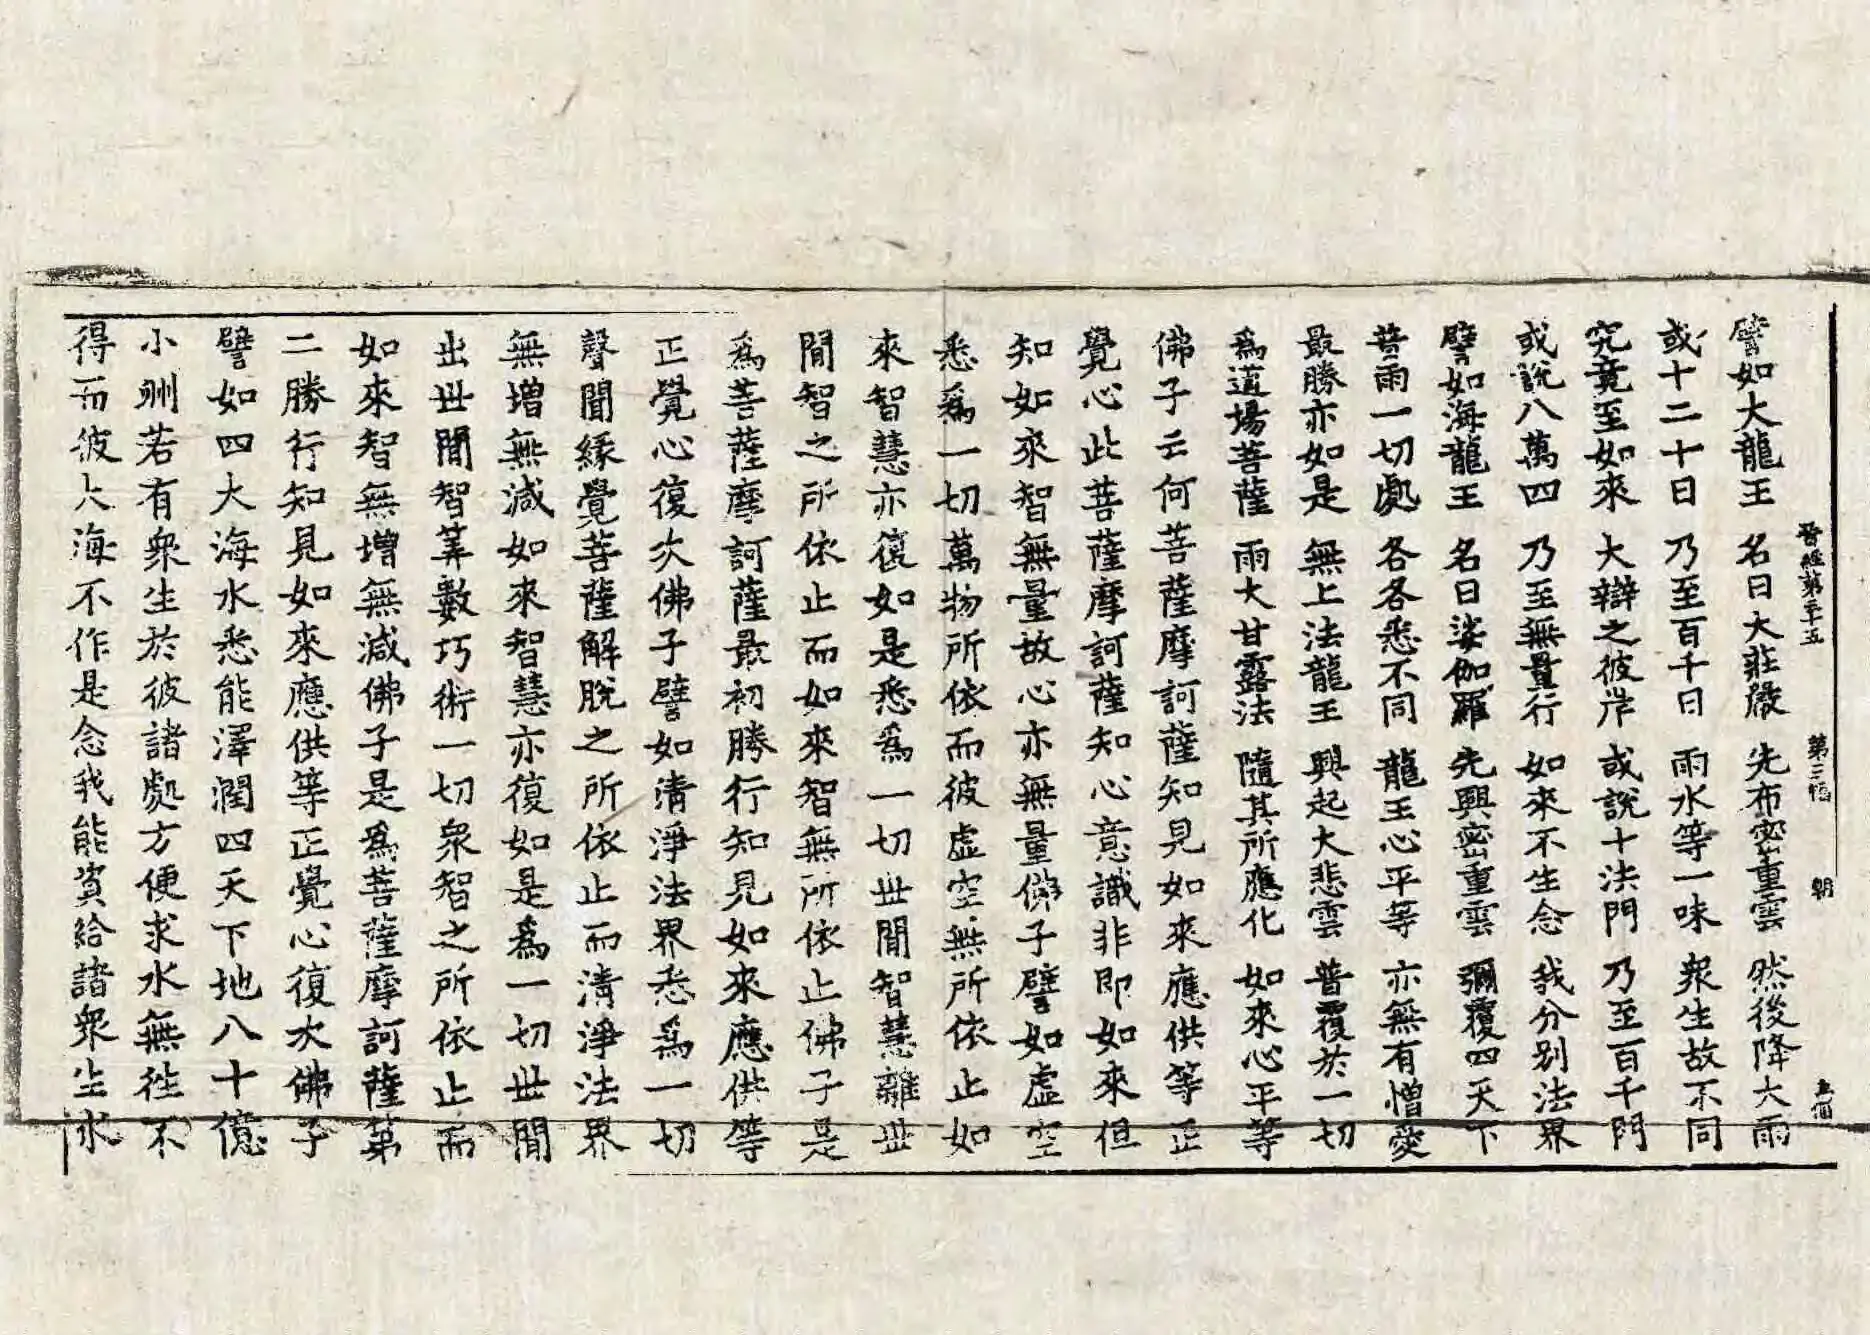 晉經第三十五 第三幅 朝 玉
譬如大龍王 名曰大莊嚴 先布密重雲 然後降大雨
或十二十日 乃至百千日 雨水等一味 衆生故不同
究竟至如來 大辯之彼岸 或說十法門 乃至百千門
或說八萬四 乃至無量行 如來不生念 我分別法界
譬如海龍王 名曰娑伽羅 先興密重雲 彌覆四天下
普雨一切處 各各悉不同 龍王心平等 亦無有憎愛
最勝亦如是 無上法龍王 興起大悲雲 普覆於一切
爲道場菩薩 雨大甘露法 隨其所應化 如來心平等
佛子云何菩薩摩訶薩知見如來應供等正
覺心此菩薩摩訶薩知心意識非即如來但
知如來智無量故心亦無量佛子譬如虛空
悉爲一切萬物所依而彼虛空無所依止如
來智慧亦復如是悉爲一切世間智慧離世
間智之所依止而如來智無所依止佛子是
爲菩薩摩訶薩最初勝行知見如來應供等
正覺心復次佛子譬如清淨法界悉爲一切
聲聞緣覺菩薩解脫之所依止而清淨法界
無增無減如來智慧亦復如是爲一切世間
出世間智筭數巧術一切衆智之所依止而
如來智無增無減佛子是爲菩薩摩訶薩第
二勝行知見如來應供等正覺心復次佛子
譬如四大海水悉能澤潤四天下地八十億
小洲若有衆生於彼諸處方便求水無徃不
得而彼大海不作是念我能資給諸衆生水